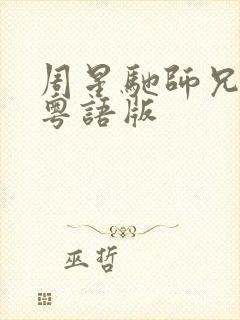 周星馳師兄
粵語版
巫哲